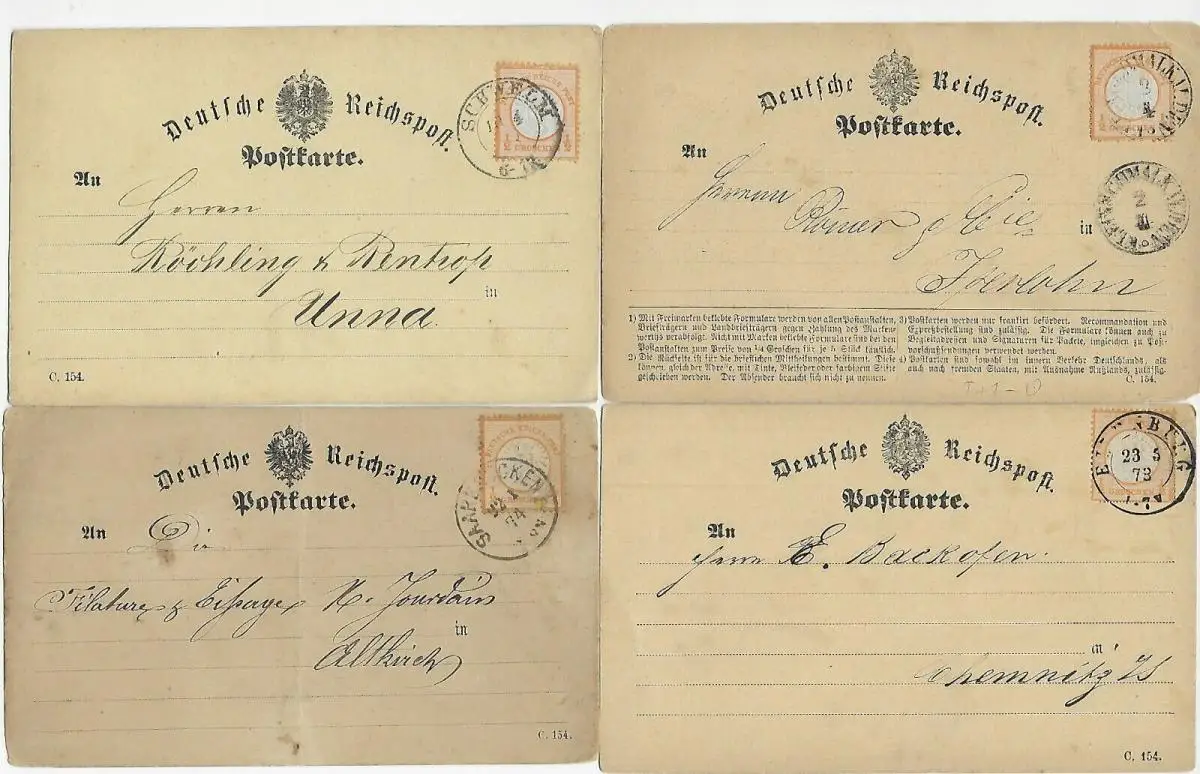 Deutsche Reichspost.
Postkarte.
SCHWELM
6-7N
½ GROSCHEN ½
An
Herren
Röchling & Rentrop
in
Unna
C. 154.
Deutsche Reichspost.
Postkarte.
KLEINSCHMALKALDEN
2
An
Herren Römer & Cie
in
Iserlohn
1) Mit Freimarken beklebte Formulare werden von allen Postanstalten,
Briefträgern und Landbriefträgern gegen Zahlung des Marken-
werths verabfolgt. Nicht mit Marken beklebte Formulare sind bei den
Postanstalten zum Preise von ¼ Groschen für je 5 Stück käuflich.
2) Die Rückseite ist für die brieflichen Mittheilungen bestimmt. Diese
können, gleich der Adresse, mit Tinte, Bleifeder oder farbigem Stifte
geschrieben werden. Der Absender braucht sich nicht zu nennen.
3) Postkarten werden nur frankirt befördert. Recommandation und
Expreßbestellung sind zulässig. Die Formulare können auch zu
Begleitadressen und Signaturen für Packete, imgleichen zu Post-
vorschußsendungen verwendet werden.
4) Postkarten sind sowohl im innern Verkehr Deutschlands, als
auch nach fremden Staaten, mit Ausnahme Rußlands, zulässig.
C. 154.
Deutsche Reichspost.
Postkarte.
SAARBRÜCKEN
12 1
74
An
Die
Filature & Tissage X. Jourdain
in
Altkirch
C. 154.
Deutsche Reichspost.
Postkarte.
23 5
73
An
Herrn E. Backofen.
in
Chemnitz i/S
C. 154.